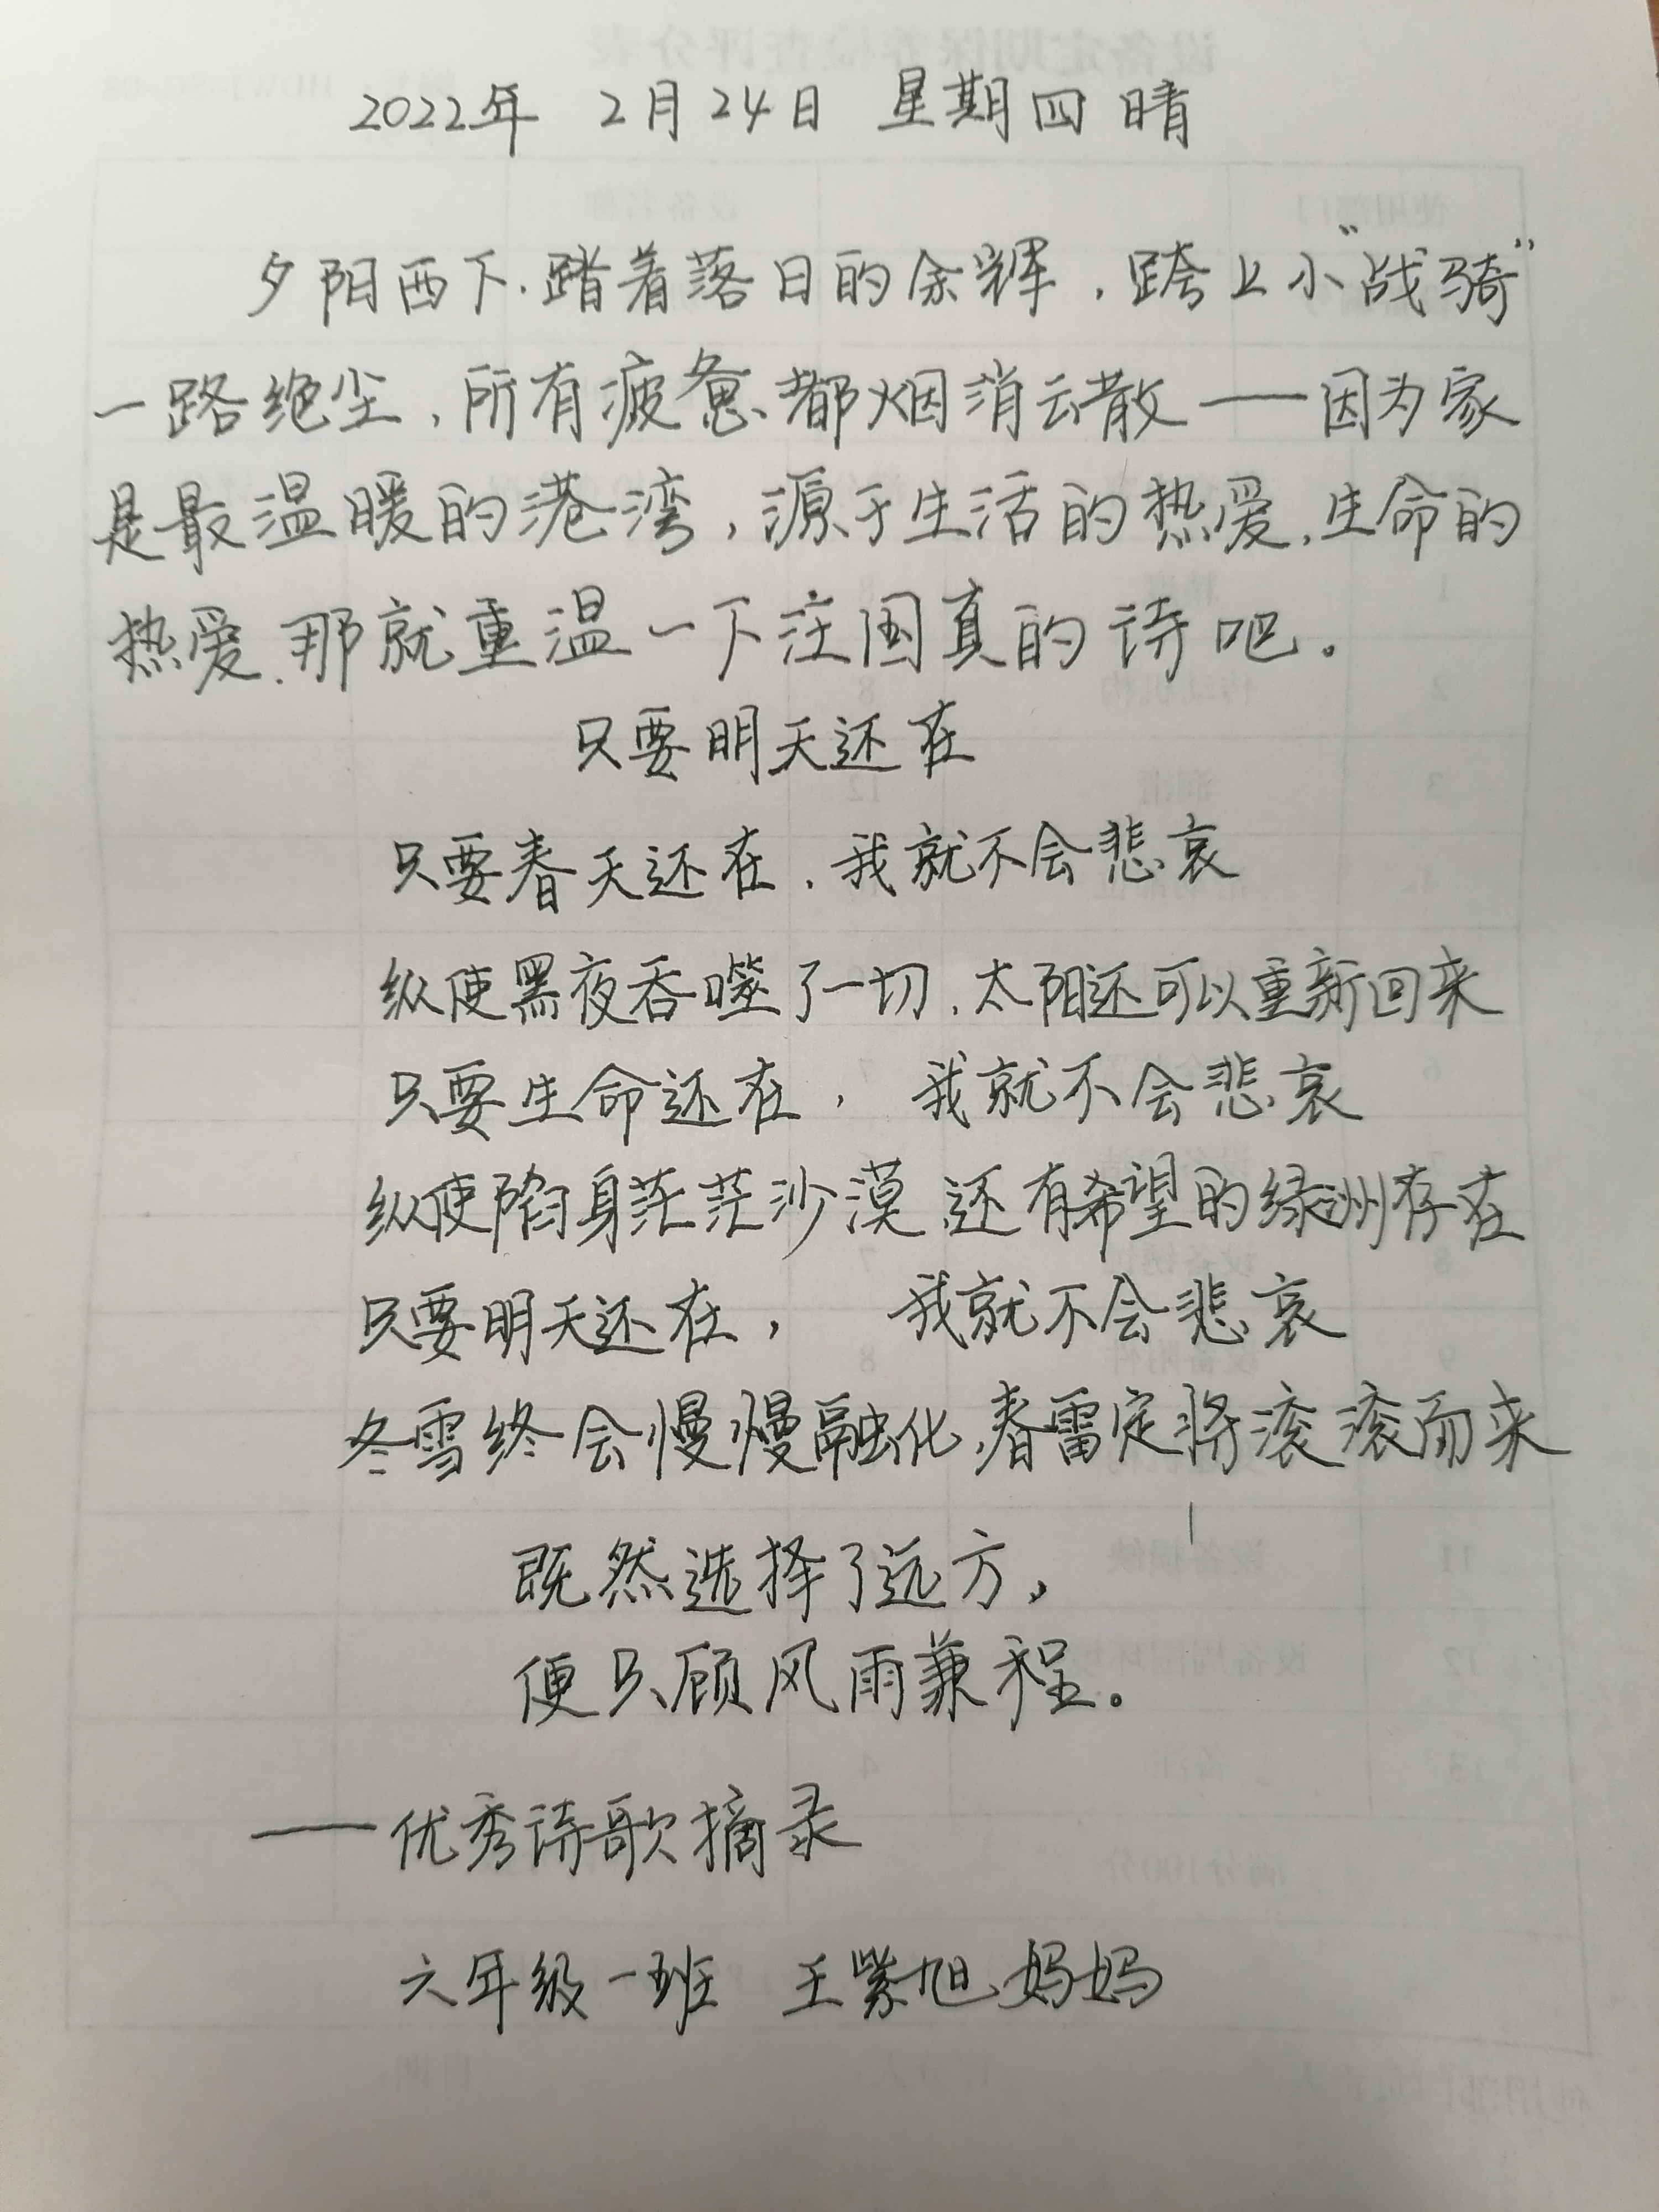 2022年 2月24日 星期四 晴
夕阳西下,踏着落日的余辉,跨上小“战骑”
一路绝尘,所有疲惫都烟消云散——因为家
是最温暖的港湾,源于生活的热爱,生命的
热爱,那就重温一下汪国真的诗吧。
只要明天还在
只要春天还在,我就不会悲哀
纵使黑夜吞噬了一切,太阳还可以重新回来
只要生命还在,我就不会悲哀
纵使陷身茫茫沙漠,还有希望的绿洲存在
只要明天还在,我就不会悲哀
冬雪终会慢慢融化,春雷定将滚滚而来
既然选择了远方,
便只顾风雨兼程。
——优秀诗歌摘录
六年级一班 王紫旭妈妈